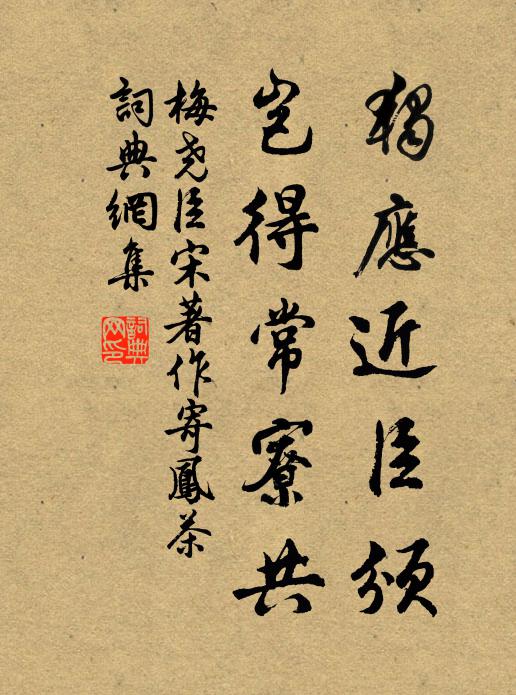 獨應近臣頒
豈得常寮共
梅堯臣宋著作寄鳳茶
詞典網集
詞典網印